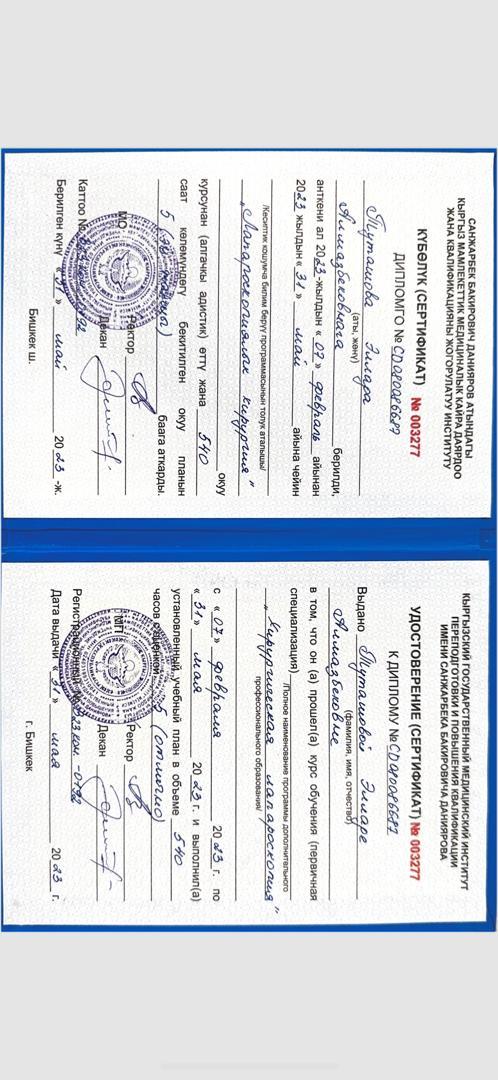 САНЖАРБЕК БАКИРОВИЧ ДАНИЯРОВ АТЫНДАГЫ
КЫРГЫЗ МАМЛЕКЕТТИК МЕДИЦИНАЛЫК КАЙРА ДАЯРДОО
ЖАНА КВАЛИФИКАЦИЯНЫ ЖОГОРУЛАТУУ ИНСТИТУТУ
КҮБӨЛҮК (СЕРТИФИКАТ) № 003277
ДИПЛОМГО №
Туташова Элара
(аты, жөнү)
Алмазбековнага берилди,
анткени ал 2023-жылдын « 07 » февраль айынан
2023 жылдын « 31 » май айына чейин
/Кесиптик кошумча билим берүү программасынын толук аталышы/
„Лапароскопиялык хирургия"
окуу
курсунан (алгачкы адистик) өттү жана 540
саат көлөмүндөгү бекитилген окуу планын
5 баага аткарды.
МО Ректор
Декан
Каттоо №
Берилген күнү « 31 » май 2023 -ж.
Бишкек ш.
КЫРГЫЗСКИЙ ГОСУДАРСТВЕННЫЙ МЕДИЦИНСКИЙ ИНСТИТУТ
ПЕРЕПОДГОТОВКИ И ПОВЫШЕНИЯ КВАЛИФИКАЦИИ
ИМЕНИ САНЖАРБЕКА БАКИРОВИЧА ДАНИЯРОВА
УДОСТОВЕРЕНИЕ (СЕРТИФИКАТ) № 003277
К ДИПЛОМУ №
Выдано Туташовой Эларе
(фамилия, имя, отчество)
Алмазбековне
в том, что он (а) прошел(а) курс обучения (первичная
специализация)
/Полное наименование программы дополнительного
профессионального образования/
„Хирургическая лапароскопия"
с « 07 » февраля 2023 г. по
« 31 » мая 2023 г. и выполнил(а)
установленный учебный план в объеме 540
часов с оценкой 5 (отлично)
МП Ректор
Декан
Регистрационный №
Дата выдачи « 31 » мая 2023 г.
г. Бишкек